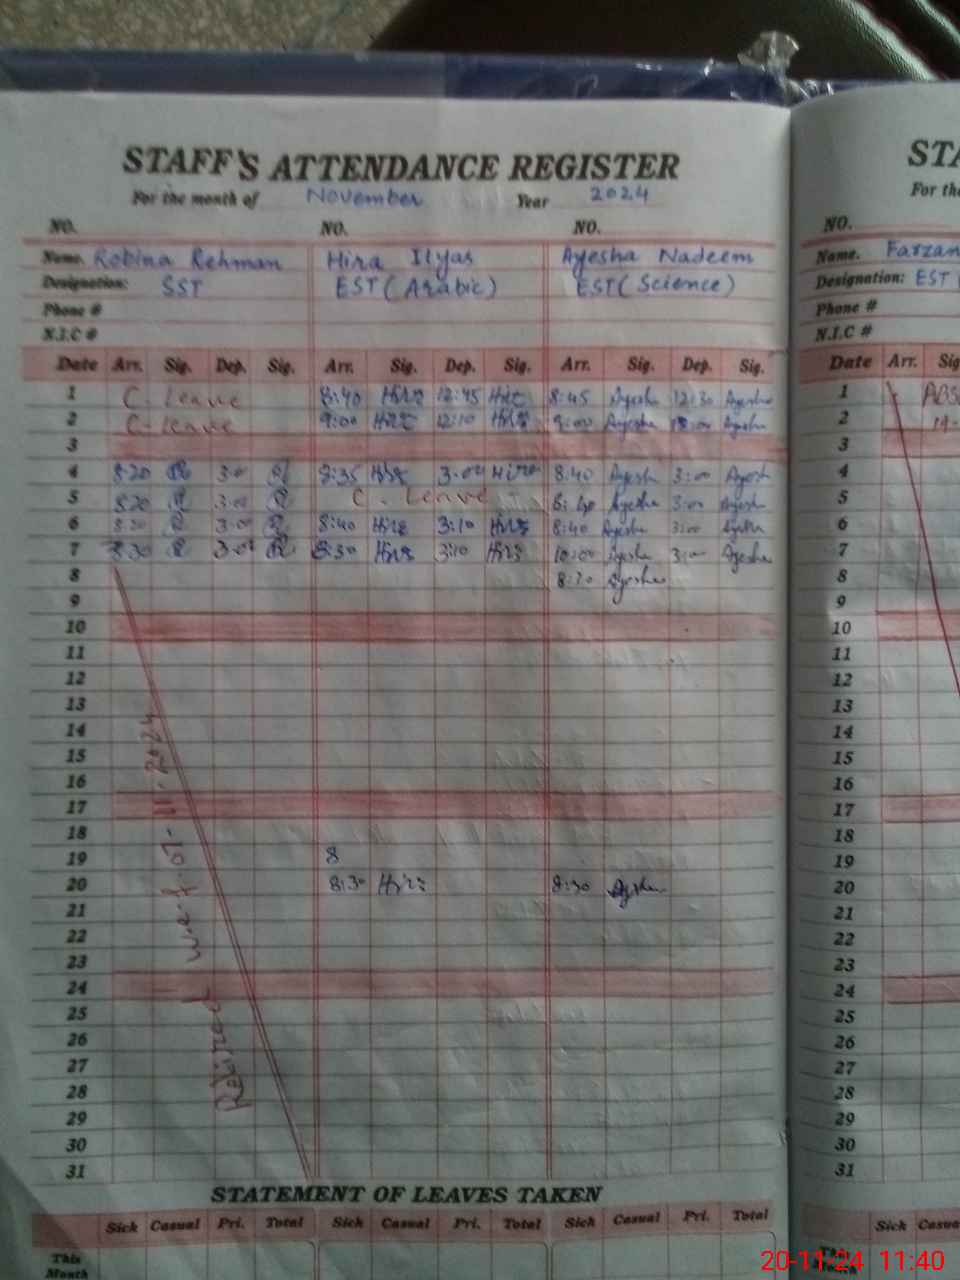 STAFF'S ATTENDANCE REGISTER
For the month of November Year 2024
NO. NO. NO.
Name. Robina Rehman Hira Ilyas Ayesha Nadeem
Designation: SST EST (Arabic) EST (Science)
Phone #
N.I.C #
Date Arr. Sig. Dep. Sig. Arr. Sig. Dep. Sig. Arr. Sig. Dep. Sig.
1 C. Leave 8:40 Hira 12:45 Hira 8:45 Ayesha 12:30 Ayesha
2 C. Leave 9:00 Hira 12:10 Hira 9:00 Ayesha Ayesha
3
4 8:20 3:00 8:35 Hira 3:00 Hira 8:40 Ayesha 3:00 Ayesha
5 8:20 3:00 C. Leave 8:40 Ayesha 3:00 Ayesha
6 8:20 3:00 8:40 Hira 3:10 Hira 8:40 Ayesha 3:00 Ayesha
7 8:30 3:00 8:30 Hira 3:10 Hira 10:00 Ayesha 3:00 Ayesha
8 Ayesha
9
10
11
12
13
14
15
16
17
18
19 8
20 8:30 Hira 8:30 Ayesha
21
22
23
24
25
26
27
28
29
30
31
Retired w.e.f. 07-11-2024
STATEMENT OF LEAVES TAKEN
Sick Casual Pri. Total Sick Casual Pri. Total Sick Casual Pri. Total
This
Month
STA
For the
NO.
Name. Farzan
Designation: EST
Phone #
N.I.C #
Date Arr. Sig
1
2
3
4
5
6
7
8
9
10
11
12
13
14
15
16
17
18
19
20
21
22
23
24
25
26
27
28
29
30
31
Sick Casua
This
Month
20-11-24 11:40